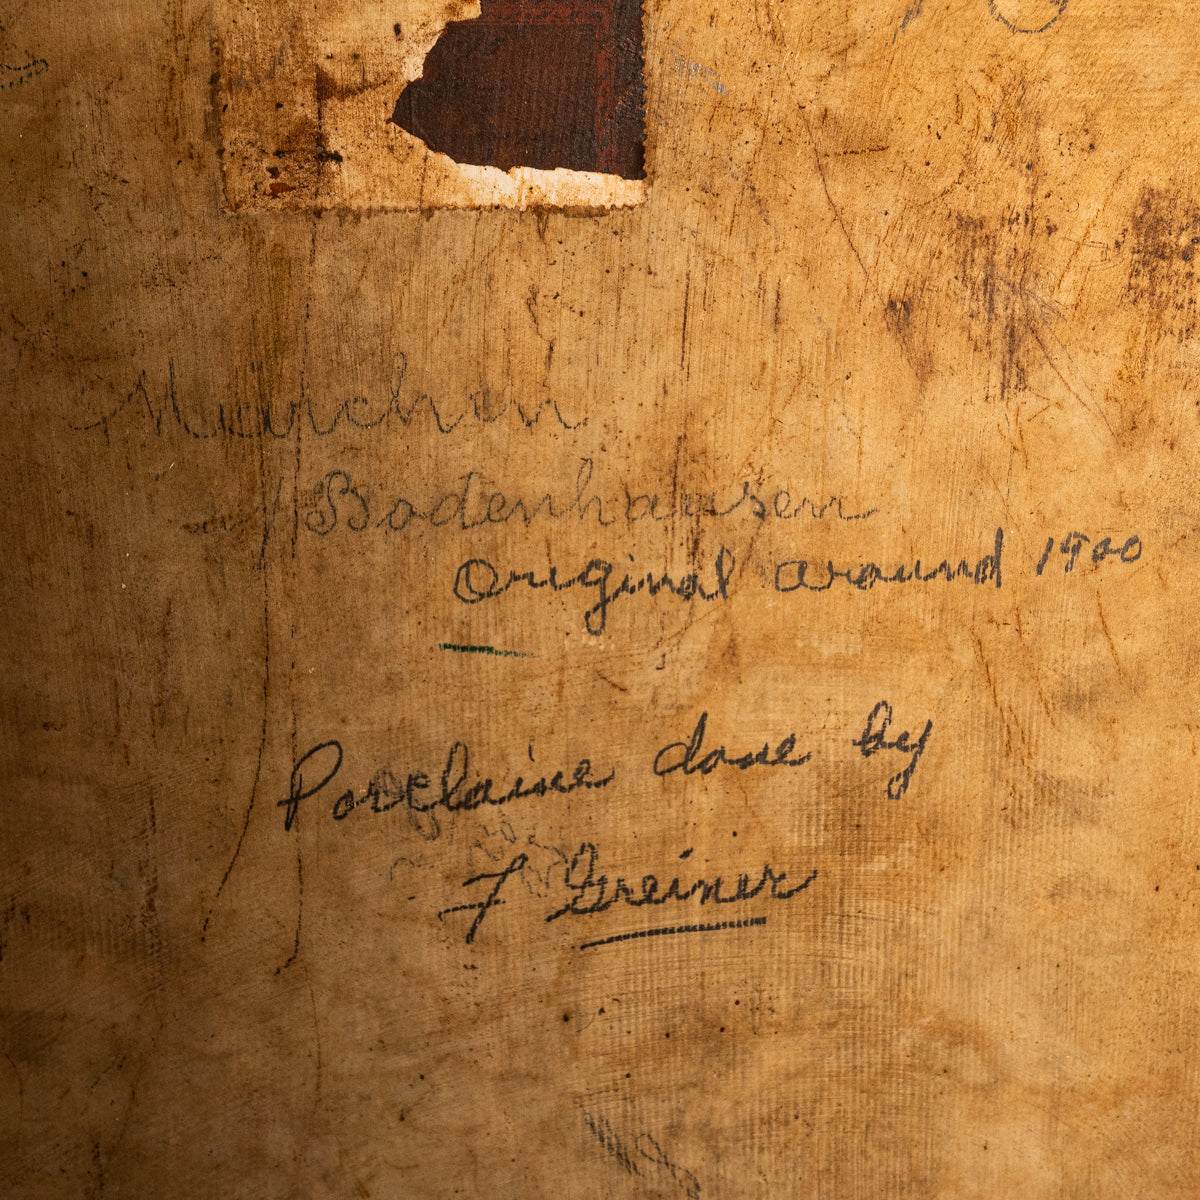 Marchen
v/ Bodenhausen
Original around 1900
Porcelaine done by
F Greiner